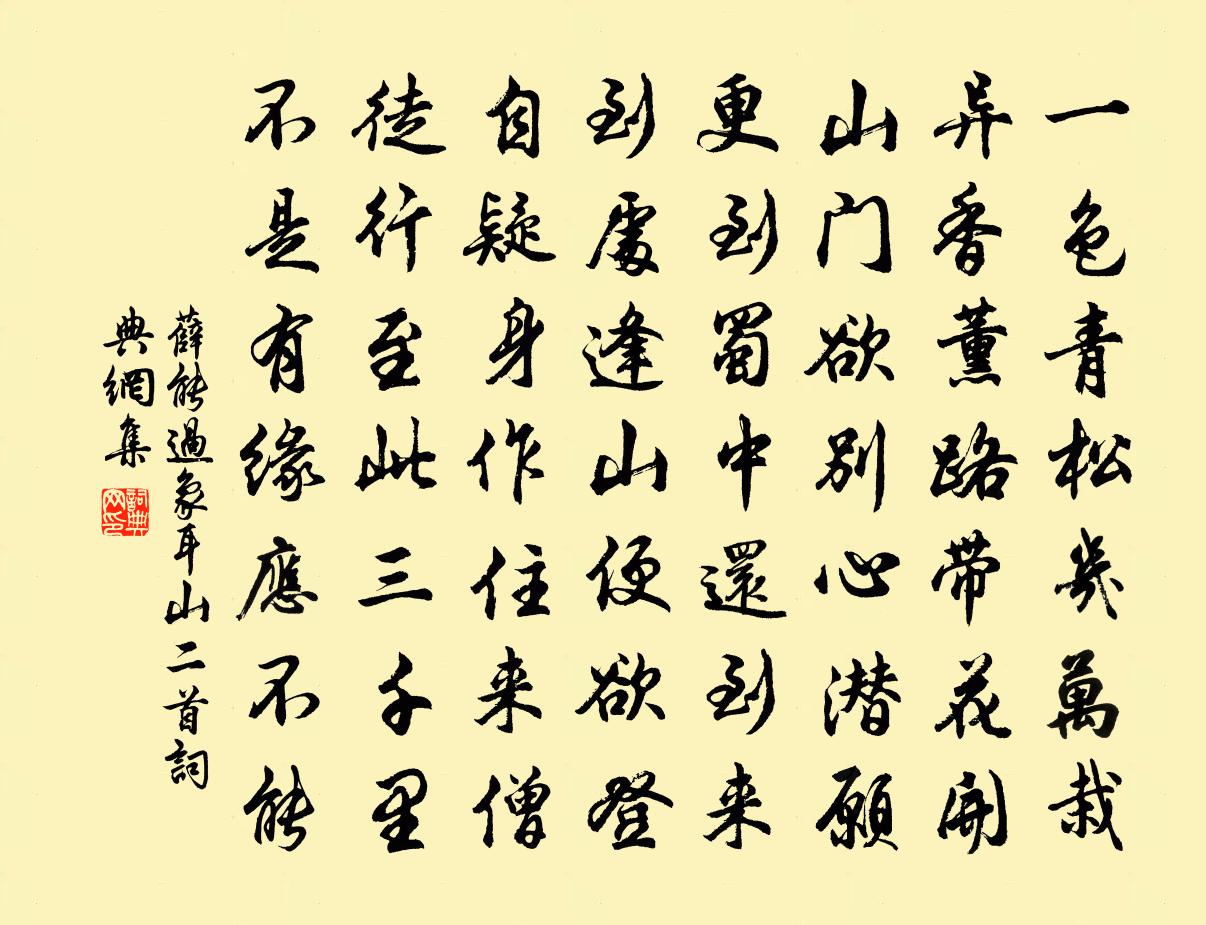 一色青松幾萬栽
异香薰路带花開
山门欲别心潜願
更到蜀中還到来
到處逢山便欲登
自疑身作住来僧
徒行至此三千里
不是有緣應不能
薛能過象耳山二首詞
典網集
詞典
网印